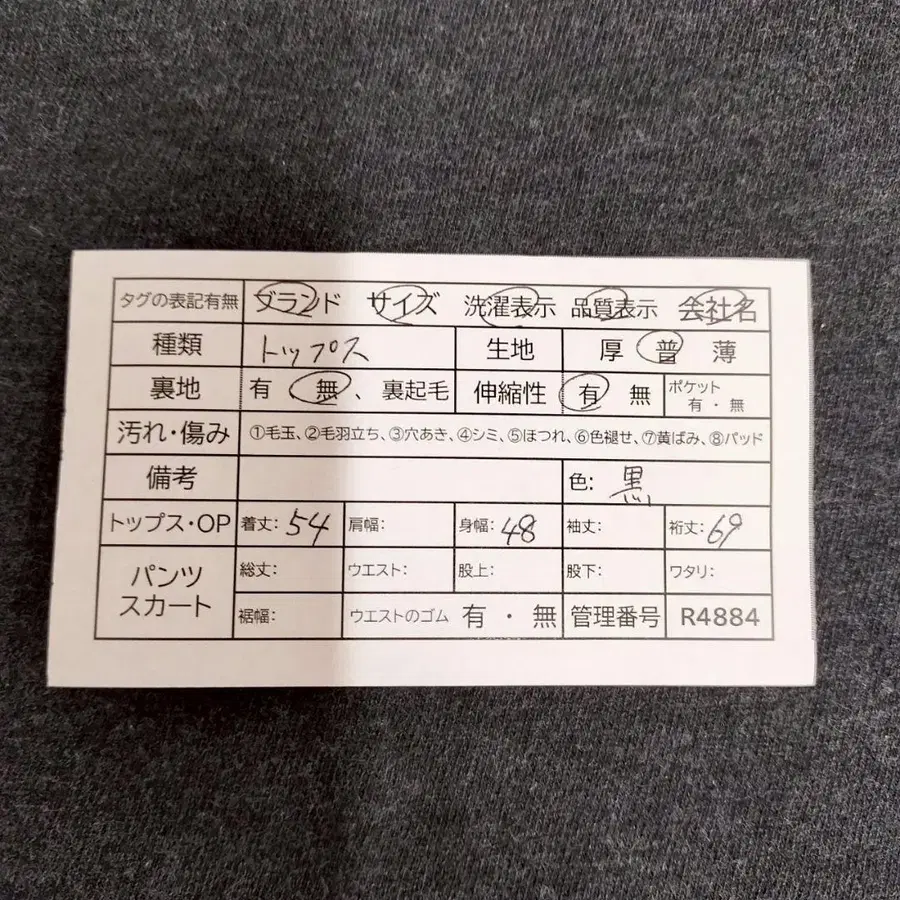 タグの表記有無 ブランド サイズ 洗濯表示 品質表示 会社名
種類 トップス 生地 厚 普 薄
裏地 有 無、裏起毛 伸縮性 有 無 ポケット 有・無
汚れ・傷み ①毛玉、②毛羽立ち、③穴あき、④シミ、⑤ほつれ、⑥色褪せ、⑦黄ばみ、⑧パッド
備考 色: 黒
トップス・OP 着丈: 54 肩幅: 身幅: 48 袖丈: 裄丈: 69
パンツ スカート 総丈: ウエスト: 股上: 股下: ワタリ:
裾幅: ウエストのゴム 有・無 管理番号 R4884